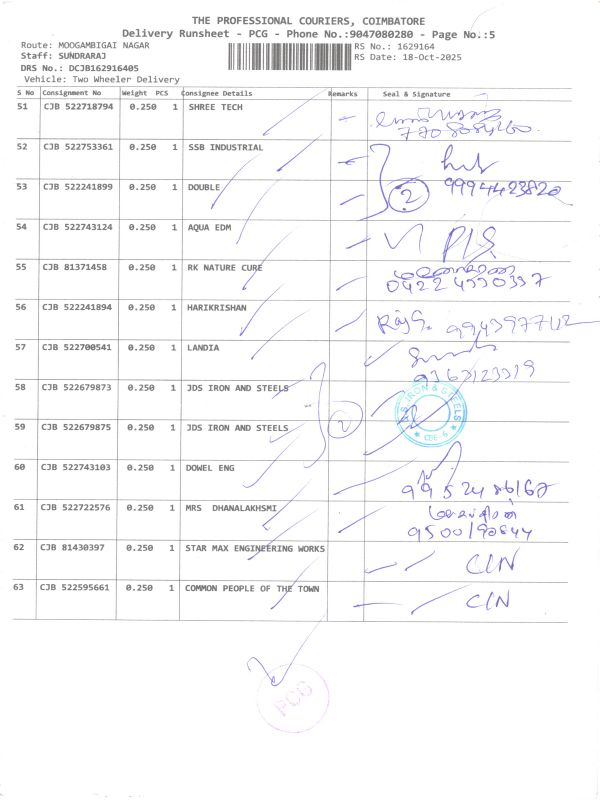 THE PROFESSIONAL COURIERS, COIMBATORE
Delivery Runsheet - PCG - Phone No.:9047080280 - Page No.:5
Route: MOOGAMBIGAI NAGAR RS No.: 1629164
Staff: SUNDRARAJ RS Date: 18-Oct-2025
DRS No.: DCJB162916405
Vehicle: Two Wheeler Delivery
S No Consignment No Weight PCS Consignee Details Remarks Seal & Signature
51 CJB 522718794 0.250 1 SHREE TECH
52 CJB 522753361 0.250 1 SSB INDUSTRIAL
53 CJB 522241899 0.250 1 DOUBLE 2 9994423820
54 CJB 522743124 0.250 1 AQUA EDM
55 CJB 81371458 0.250 1 RK NATURE CURE
0422 4330337
56 CJB 522241894 0.250 1 HARIKRISHAN
57 CJB 522700541 0.250 1 LANDIA
58 CJB 522679873 0.250 1 JDS IRON AND STEELS
59 CJB 522679875 0.250 1 JDS IRON AND STEELS 2 CBE-6
60 CJB 522743103 0.250 1 DOWEL ENG
61 CJB 522722576 0.250 1 MRS DHANALAKHSMI
62 CJB 81430397 0.250 1 STAR MAX ENGINEERING WORKS C/N
63 CJB 522595661 0.250 1 COMMON PEOPLE OF THE TOWN C/N
PCG